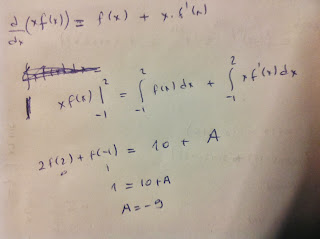 d/dx (xf(x)) = f(x) + x.f'(x)
xf(x) |₋₁² = ∫₋₁² f(x) dx + ∫₋₁² xf'(x) dx
2f(2) + f(-1) = 10 + A
0 1
1 = 10 + A
A = -9